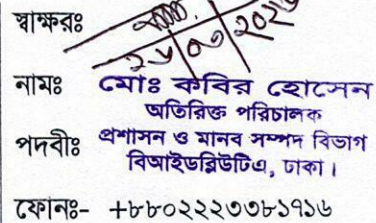 স্বাক্ষরঃ
নামঃ মোঃ কবির হোসেন
অতিরিক্ত পরিচালক
পদবীঃ প্রশাসন ও মানব সম্পদ বিভাগ
বিআইডব্লিউটিএ, ঢাকা।
ফোনঃ- +৮৮০২২২৩৩৮১৭১৬